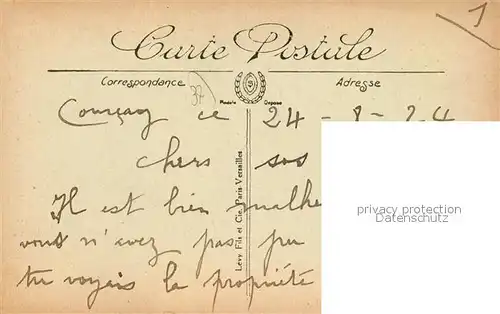 1
Carte Postale
Correspondance
Adresse
37
Modèle Déposé
Courçay ce 24 - 8 - 24
chers
Il est bien malhe
vous n'avez pas pu
tu voyais la propriété
Lévy Fils et Cie, Paris-Versailles
privacy protection
Datenschutz